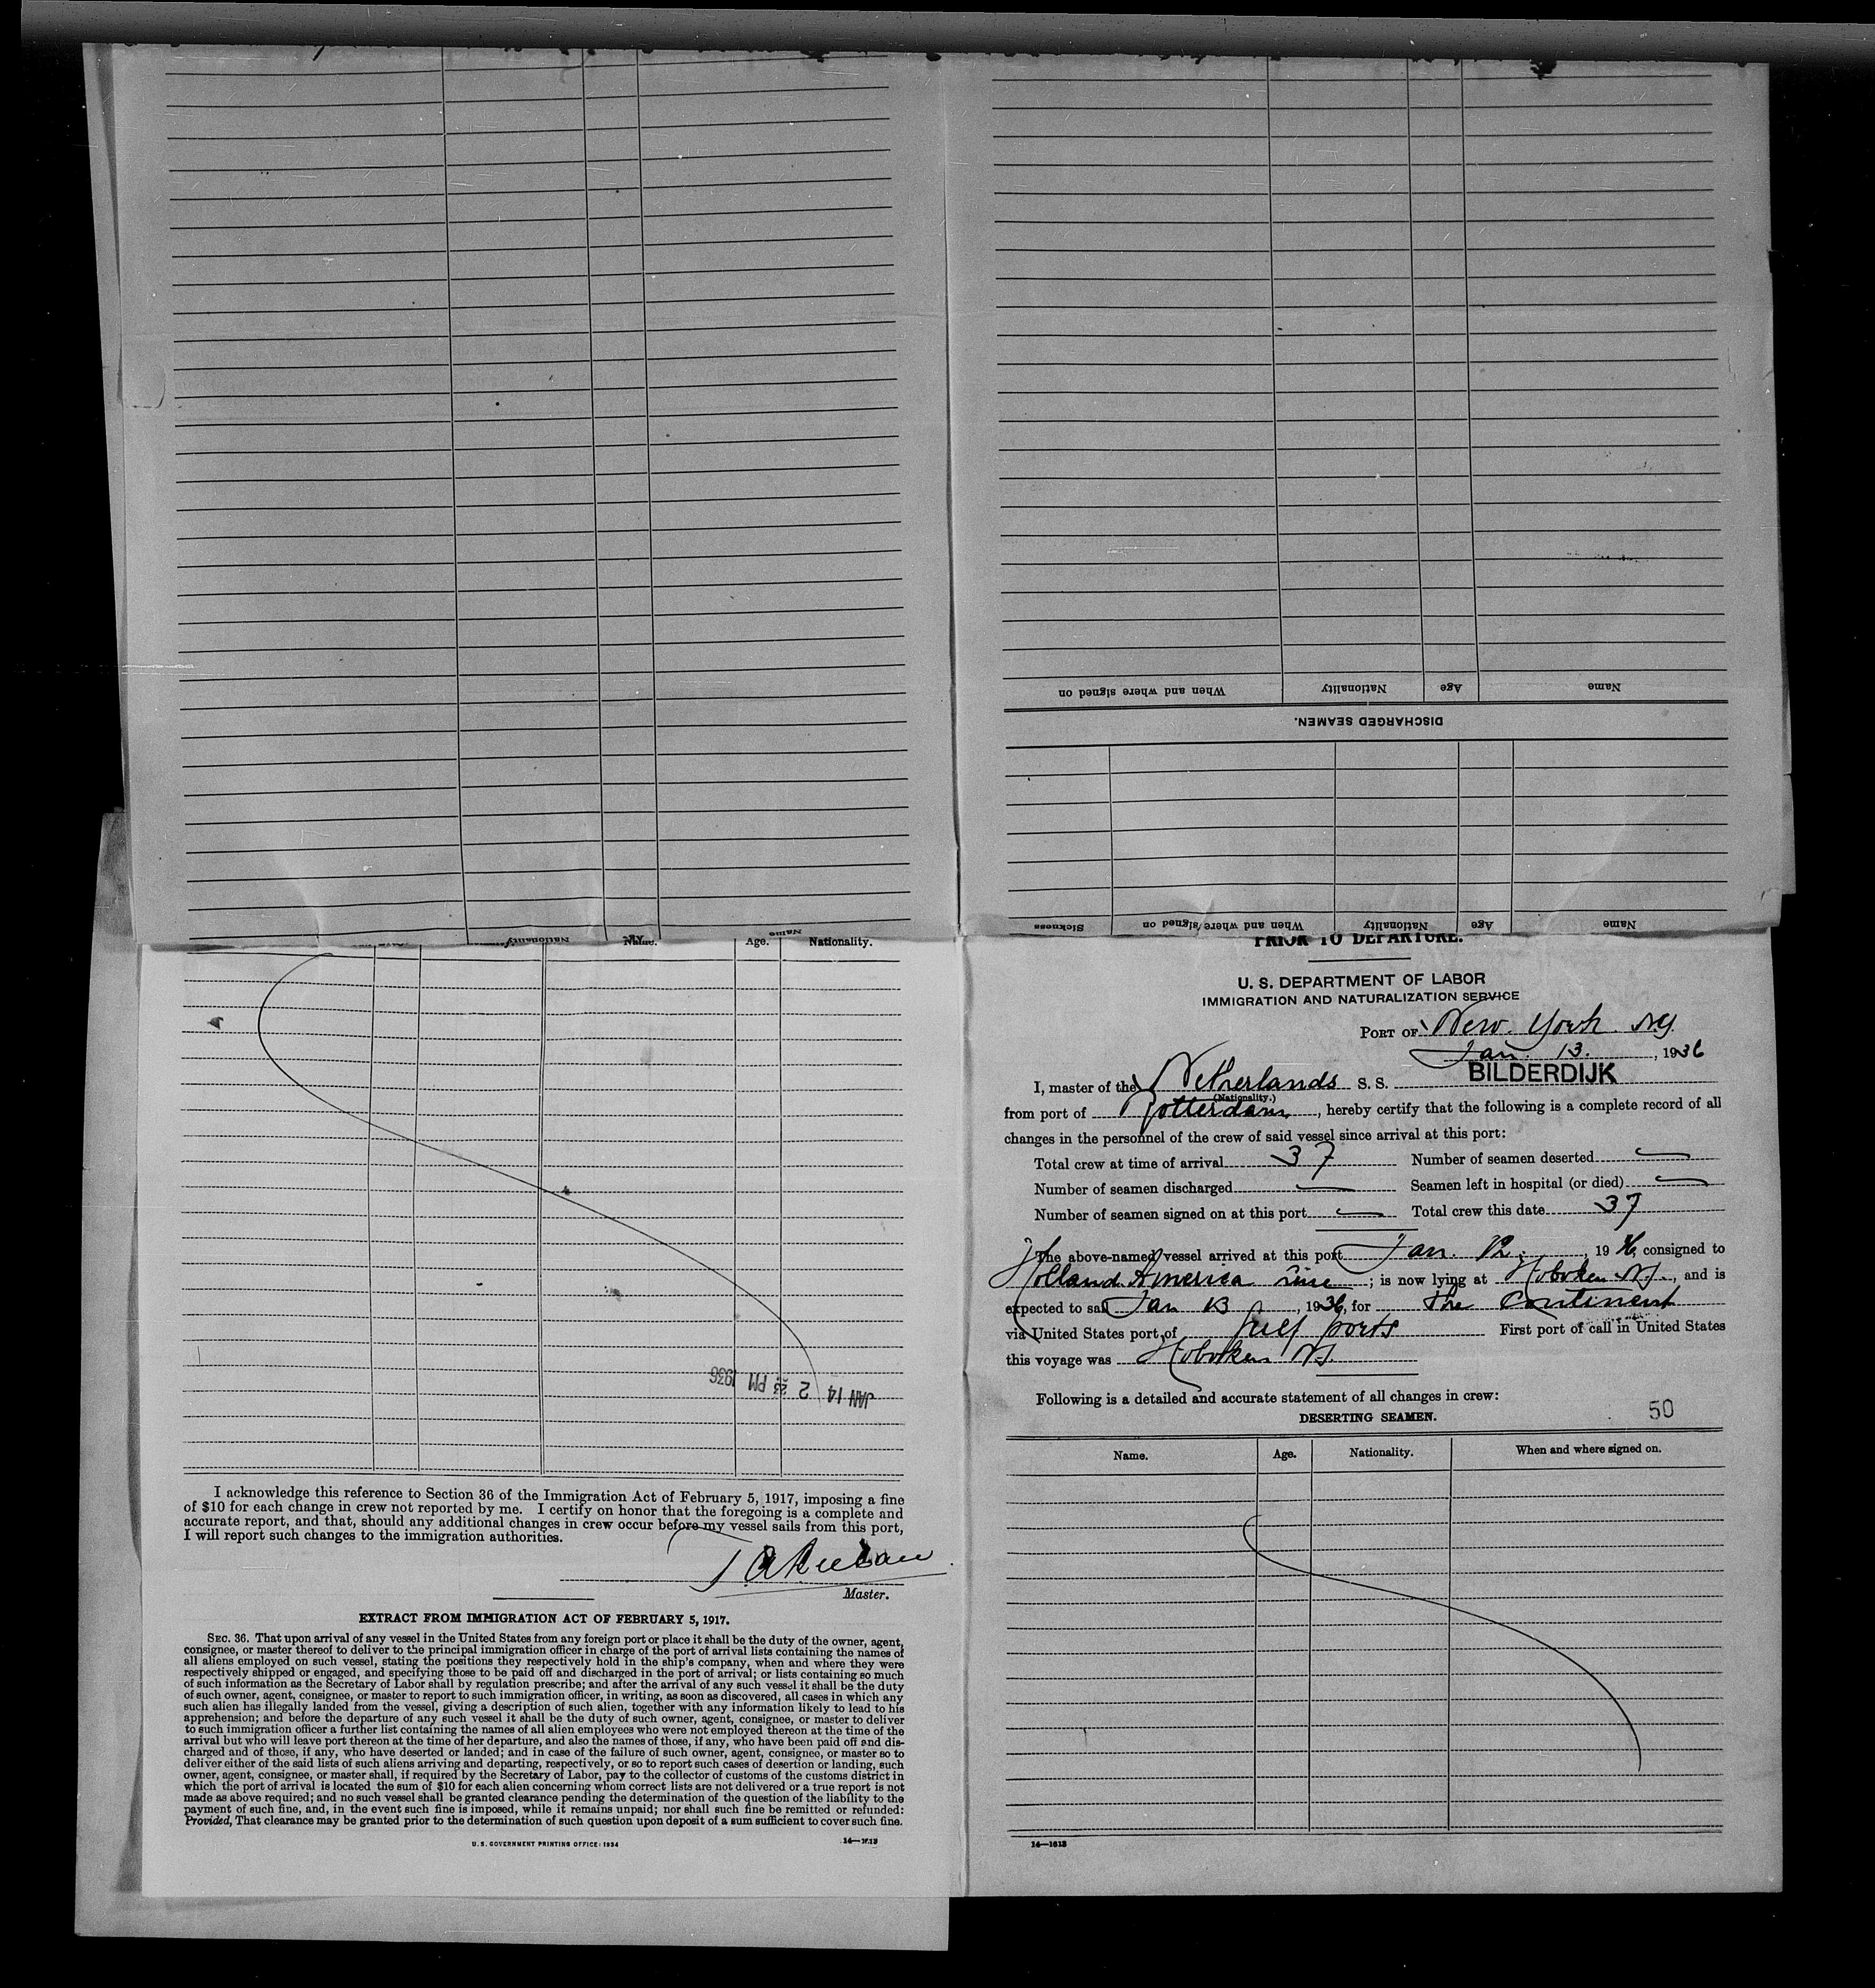 When and where signed on Nationality Age Name
DISCHARGED SEAMEN.
Sickness When and where signed on Nationality Age Name
Nationality Name
Name. Age. Nationality.
JAN 14 2 23 PM 1936
I acknowledge this reference to Section 36 of the Immigration Act of February 5, 1917, imposing a fine
of $10 for each change in crew not reported by me. I certify on honor that the foregoing is a complete and
accurate report, and that, should any additional changes in crew occur before my vessel sails from this port,
I will report such changes to the immigration authorities.
Master.
EXTRACT FROM IMMIGRATION ACT OF FEBRUARY 5, 1917.
SEC. 36. That upon arrival of any vessel in the United States from any foreign port or place it shall be the duty of the owner, agent,
consignee, or master thereof to deliver to the principal immigration officer in charge of the port of arrival lists containing the names of
all aliens employed on such vessel, stating the positions they respectively hold in the ship's company, when and where they were
respectively shipped or engaged, and specifying those to be paid off and discharged in the port of arrival; or lists containing so much
of such information as the Secretary of Labor shall by regulation prescribe; and after the arrival of any such vessel it shall be the duty
of such owner, agent, consignee, or master to report to such immigration officer, in writing, as soon as discovered, all cases in which any
such alien has illegally landed from the vessel, giving a description of such alien, together with any information likely to lead to his
apprehension; and before the departure of any such vessel it shall be the duty of such owner, agent, consignee, or master to deliver
to such immigration officer a further list containing the names of all alien employees who were not employed thereon at the time of the
arrival but who will leave port thereon at the time of her departure, and also the names of those, if any, who have been paid off and dis-
charged and of those, if any, who have deserted or landed; and in case of the failure of such owner, agent, consignee, or master so to
deliver either of the said lists of such aliens arriving and departing, respectively, or so to report such cases of desertion or landing, such
owner, agent, consignee, or master shall, if required by the Secretary of Labor, pay to the collector of customs of the customs district in
which the port of arrival is located the sum of $10 for each alien concerning whom correct lists are not delivered or a true report is not
made as above required; and no such vessel shall be granted clearance pending the determination of the question of the liability to the
payment of such fine, and, in the event such fine is imposed, while it remains unpaid; nor shall such fine be remitted or refunded:
Provided, That clearance may be granted prior to the determination of such question upon deposit of a sum sufficient to cover such fine.
U. S. GOVERNMENT PRINTING OFFICE: 1934 14—1613
PRIOR TO DEPARTURE.
U. S. DEPARTMENT OF LABOR
IMMIGRATION AND NATURALIZATION SERVICE
PORT OF New York NY
Jan. 13. , 1936
I, master of the Netherlands S. S. BILDERDIJK
(Nationality.)
from port of Rotterdam , hereby certify that the following is a complete record of all
changes in the personnel of the crew of said vessel since arrival at this port:
Total crew at time of arrival 37 Number of seamen deserted —
Number of seamen discharged — Seamen left in hospital (or died) —
Number of seamen signed on at this port — Total crew this date 37
The above-named vessel arrived at this port Jan. 12. , 1936, consigned to
Holland America Line ; is now lying at Hoboken N.J. , and is
expected to sail Jan 13 , 1936, for the Continent
via United States port of Gulf ports First port of call in United States
this voyage was Hoboken N.J.
Following is a detailed and accurate statement of all changes in crew:
DESERTING SEAMEN. 50
Name. Age. Nationality. When and where signed on.
14—1613